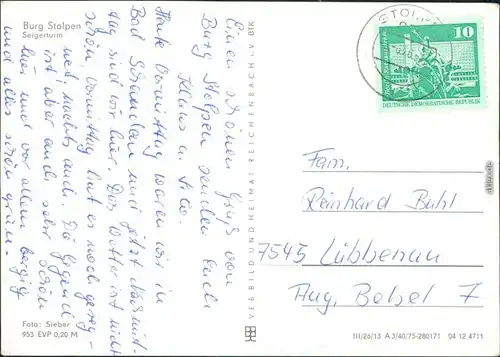 Burg Stolpen
Seigerturm
Einen schönen Gruß von
Burg Stolpen senden Euch
Klaus u.
Heute Vormittag waren wir in
Bad Schandau und jetzt Nachmit-
tag sind wir hier. Das Wetter ist nicht
schön, Vormittag hat es noch gereg-
net, nachts auch. Die Gegend
ist aber auch sehr schön
hier und vor allem bergig
und alles schön grün.
Foto: Sieber
953 EVP 0,20 M
VEB BILD UND HEIMAT REICHENBACH I. V. BTK
STOLPEN
10
DEUTSCHE DEMOKRATISCHE REPUBLIK
Fam.
Reinhard Buhl
7545 Lübbenau
Aug. Bebel 7
III/26/13 A 3/40/75-280171 04 12 4711